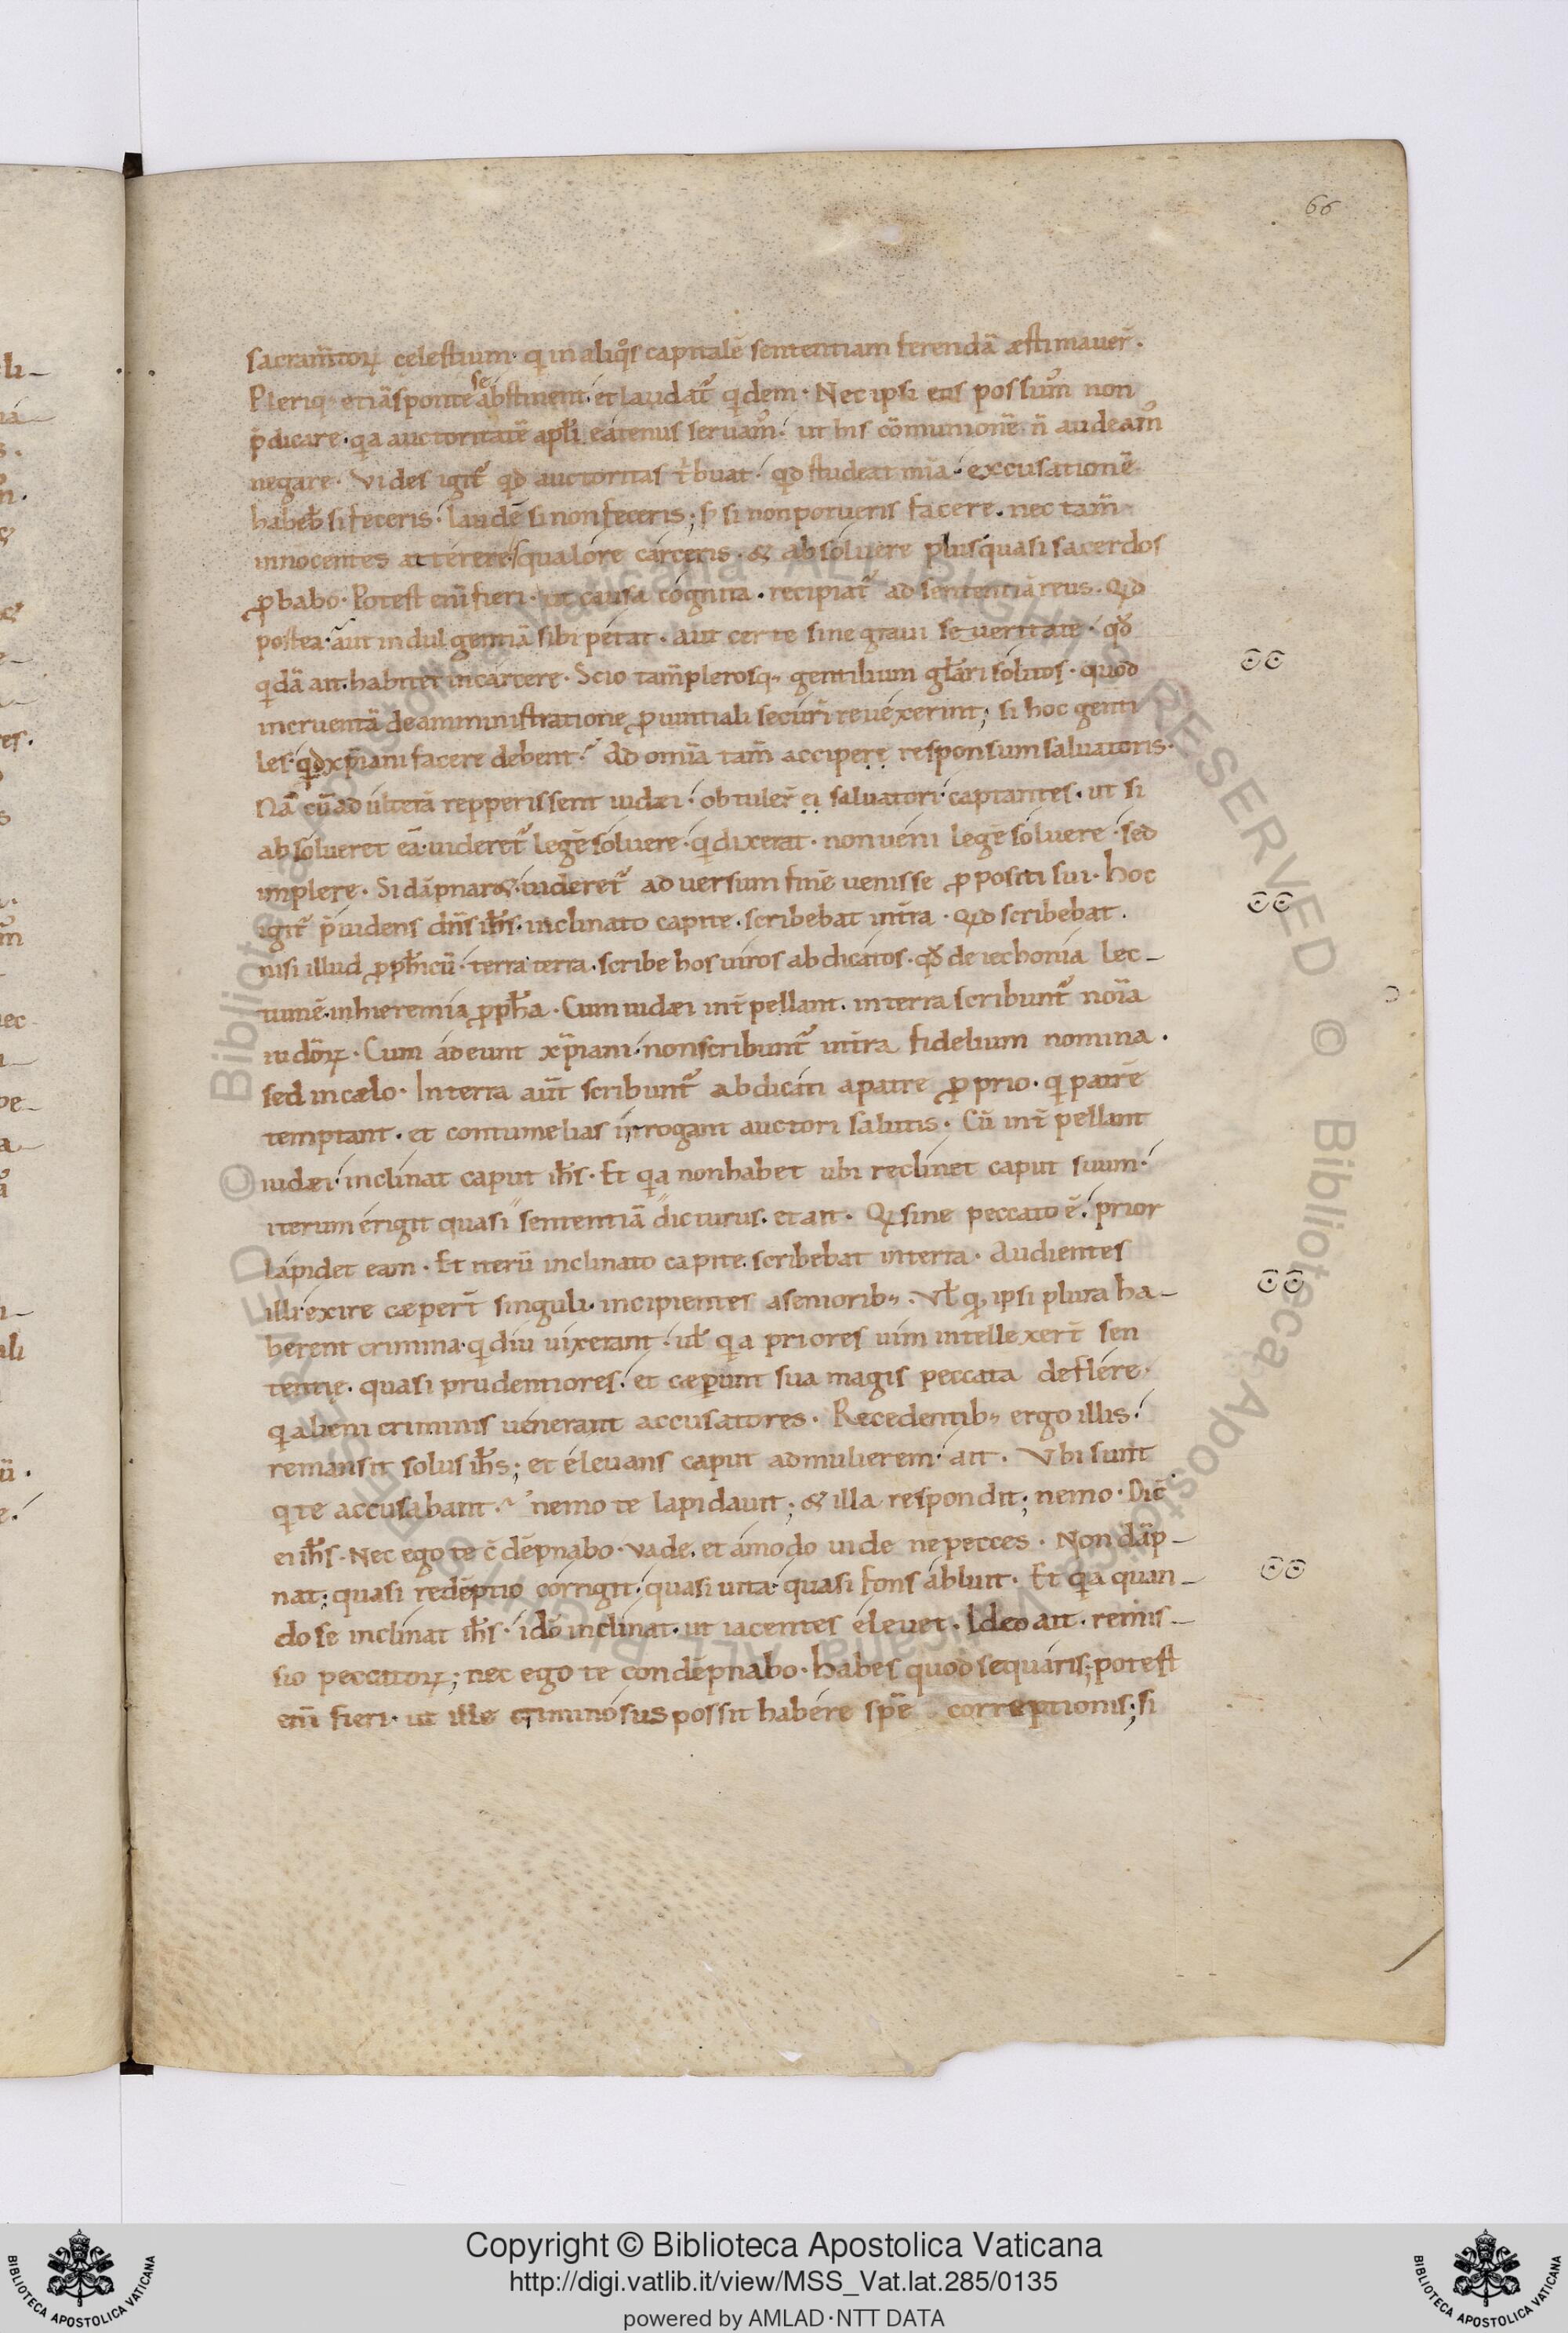 66
sacram̄torꝝ celestium· qui in aliq̊s capitalē sententiam ferendā æstimauer̄·
Pleriq; etiā sponte se abstinent· et laudat᷑ qidem· Nec ipsi eos possum᷒ non
p̄dicare· qia auctoritatē apl̄i eatenus seruam᷒· ut his cōmunionē n̄ audeam᷒
negare· Vides igit᷑ qid auctoritas tribuat· qid studeat mīa· excusationē
habeb̄ si feceris· laudē si non feceris; s; si non potueris facere· nec tam̄
innocentes atterere squalore carceris· & absoluere plus quasi sacerdos
ꝓbabo· Potest eni̅ fieri· ut causa cognita· recipiat᷑ ad sententiā reus· Qid
postea· aut indulgentiā sibi petat· aut certe sine graui seueritate· qđ
qidā ait· habitet in carcere· Scio tam̄ plerosq; gentilium gl̄ari solitos· quod
incruentā de amministratione ꝓuintiali securi̅ reuexerint; si hoc genti
les· qid xp̄iani facere debent· Ad om̄ia tam̄ accipere responsum saluatoris·
Nā cū adulterā repperissent iudæi· obtuler̄ ei saluatori· captantes· ut si
absolueret eā· uideret᷑ legē soluere· qui dixerat· non ueni legē soluere· sed
implere· Si dāpnar&· uideret᷑ aduersum finē uenisse ꝓpositi sui· hoc
igit᷑ p̄uidens dn̄s ih̄s· inclinato capite· scribebat in t̄ra· Qid scribebat·
nisi illud ꝓph̄icū· terra terra· scribe hos uiros abdicatos· qđ de iechonia lec-
tum ē· in hieremia ꝓph̄a· Cum iudæi int̄pellant· in terra scribunt᷑ noīa
iudo̅rꝝ· Cum adeunt xp̄iani· non scribunt᷑ in t̄ra fidelium nomina·
sed in cælo· In terra aūt scribunt᷑ abdicati a patre ꝓprio· qui patrē
temptant· et contumelias irrogant auctori salutis· Cū int̄pellant
iudæi· inclinat caput ih̄s· Et qia non habet ubi reclinet caput suum·
iterum erigit quasi sententiā dicturus· et ait· Qui sine peccato ē· prior
lapidet eam· Et iterū inclinato capite· scribebat in terra· Audientes
illi· exire cæper̄t singuli· incipientes a seniorib;· Vl̄ qđ ipsi plura ha-
berent crimina· qui diu uixerant· ul̄ qia priores uim intellexer̄t sen
tentię· quasi prudentiores· et cæperunt sua magis peccata deflere·
qui alieni criminis uenerant accusatores· Recedentib; ergo illis·
remansit solus ih̄s; et eleuans caput ad mulierem· ait· Vbi sunt
qui te accusabant· nemo te lapidauit; & illa respondit; nemo· Dic̄
ei ih̄s· Nec ego te c̄dēpnabo· Vade· et amodo uide ne pecces· Non dāp-
nat; quasi redēptio· corrigit· quasi uita· quasi fons abluit· Et qia quan-
do se inclinat ih̄s· idō inclinat· ut iacentes eleuet· Ideo ait· remis-
sio peccatorꝝ; nec ego te condēpnabo· habes quod sequaris; potest
eni̅ fieri· ut ille criminosus possit habere spē correptionis; si
Copyright © Biblioteca Apostolica Vaticana
http://digi.vatlib.it/view/MSS_Vat.lat.285/0135
powered by AMLAD·NTT DATA